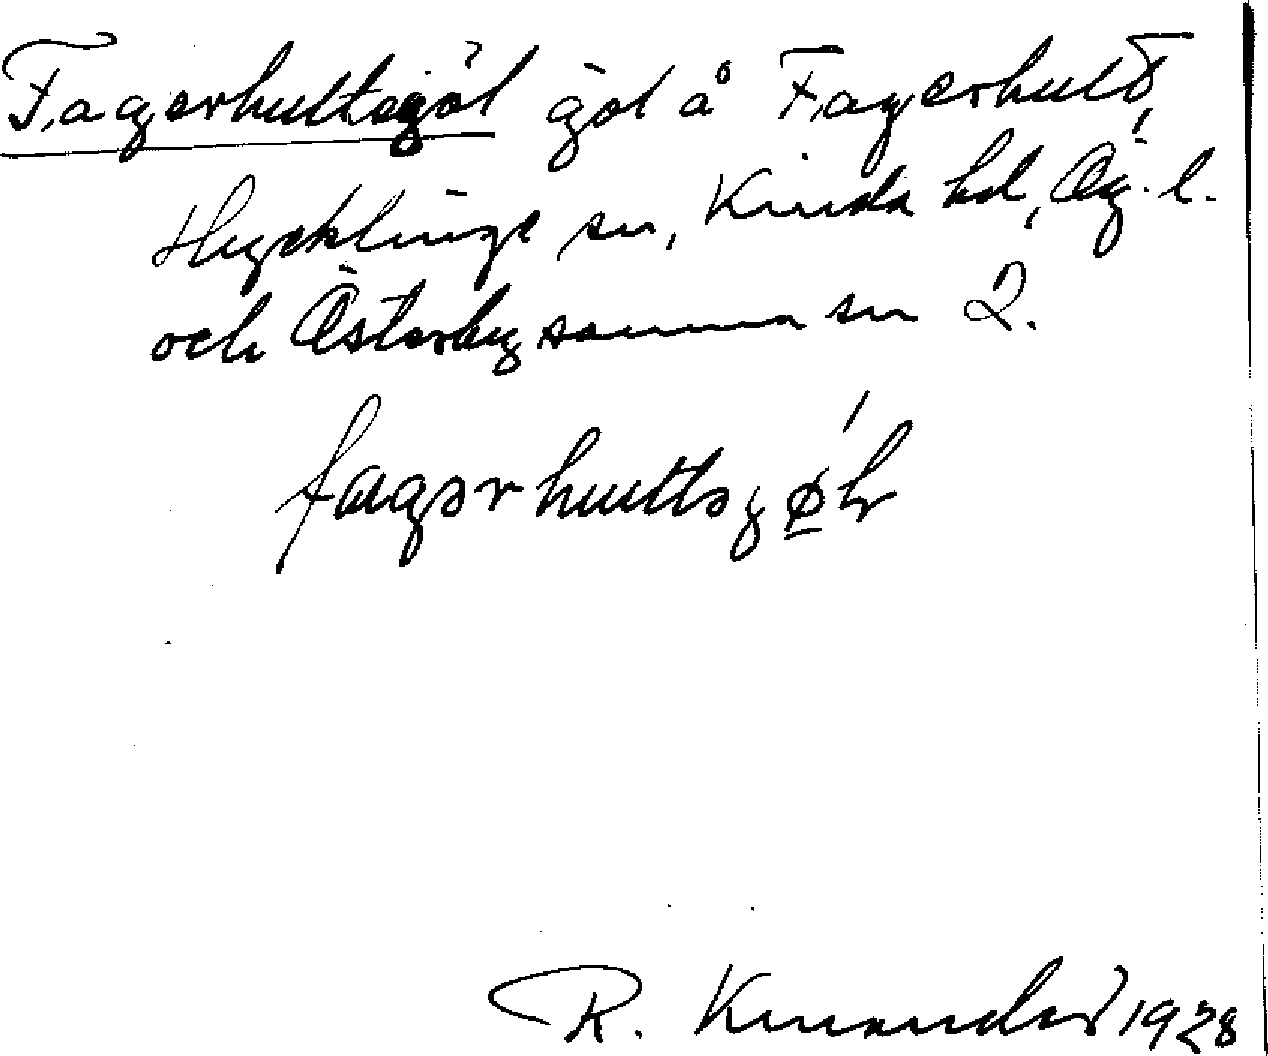 Fagerhultsgöl göl å Fagerhult,
Hycklinge sn, Kinda hd, Ög. l.
och Österby samma sn 2.
fagərhultsgǿ̲l
R. Kinander 1928